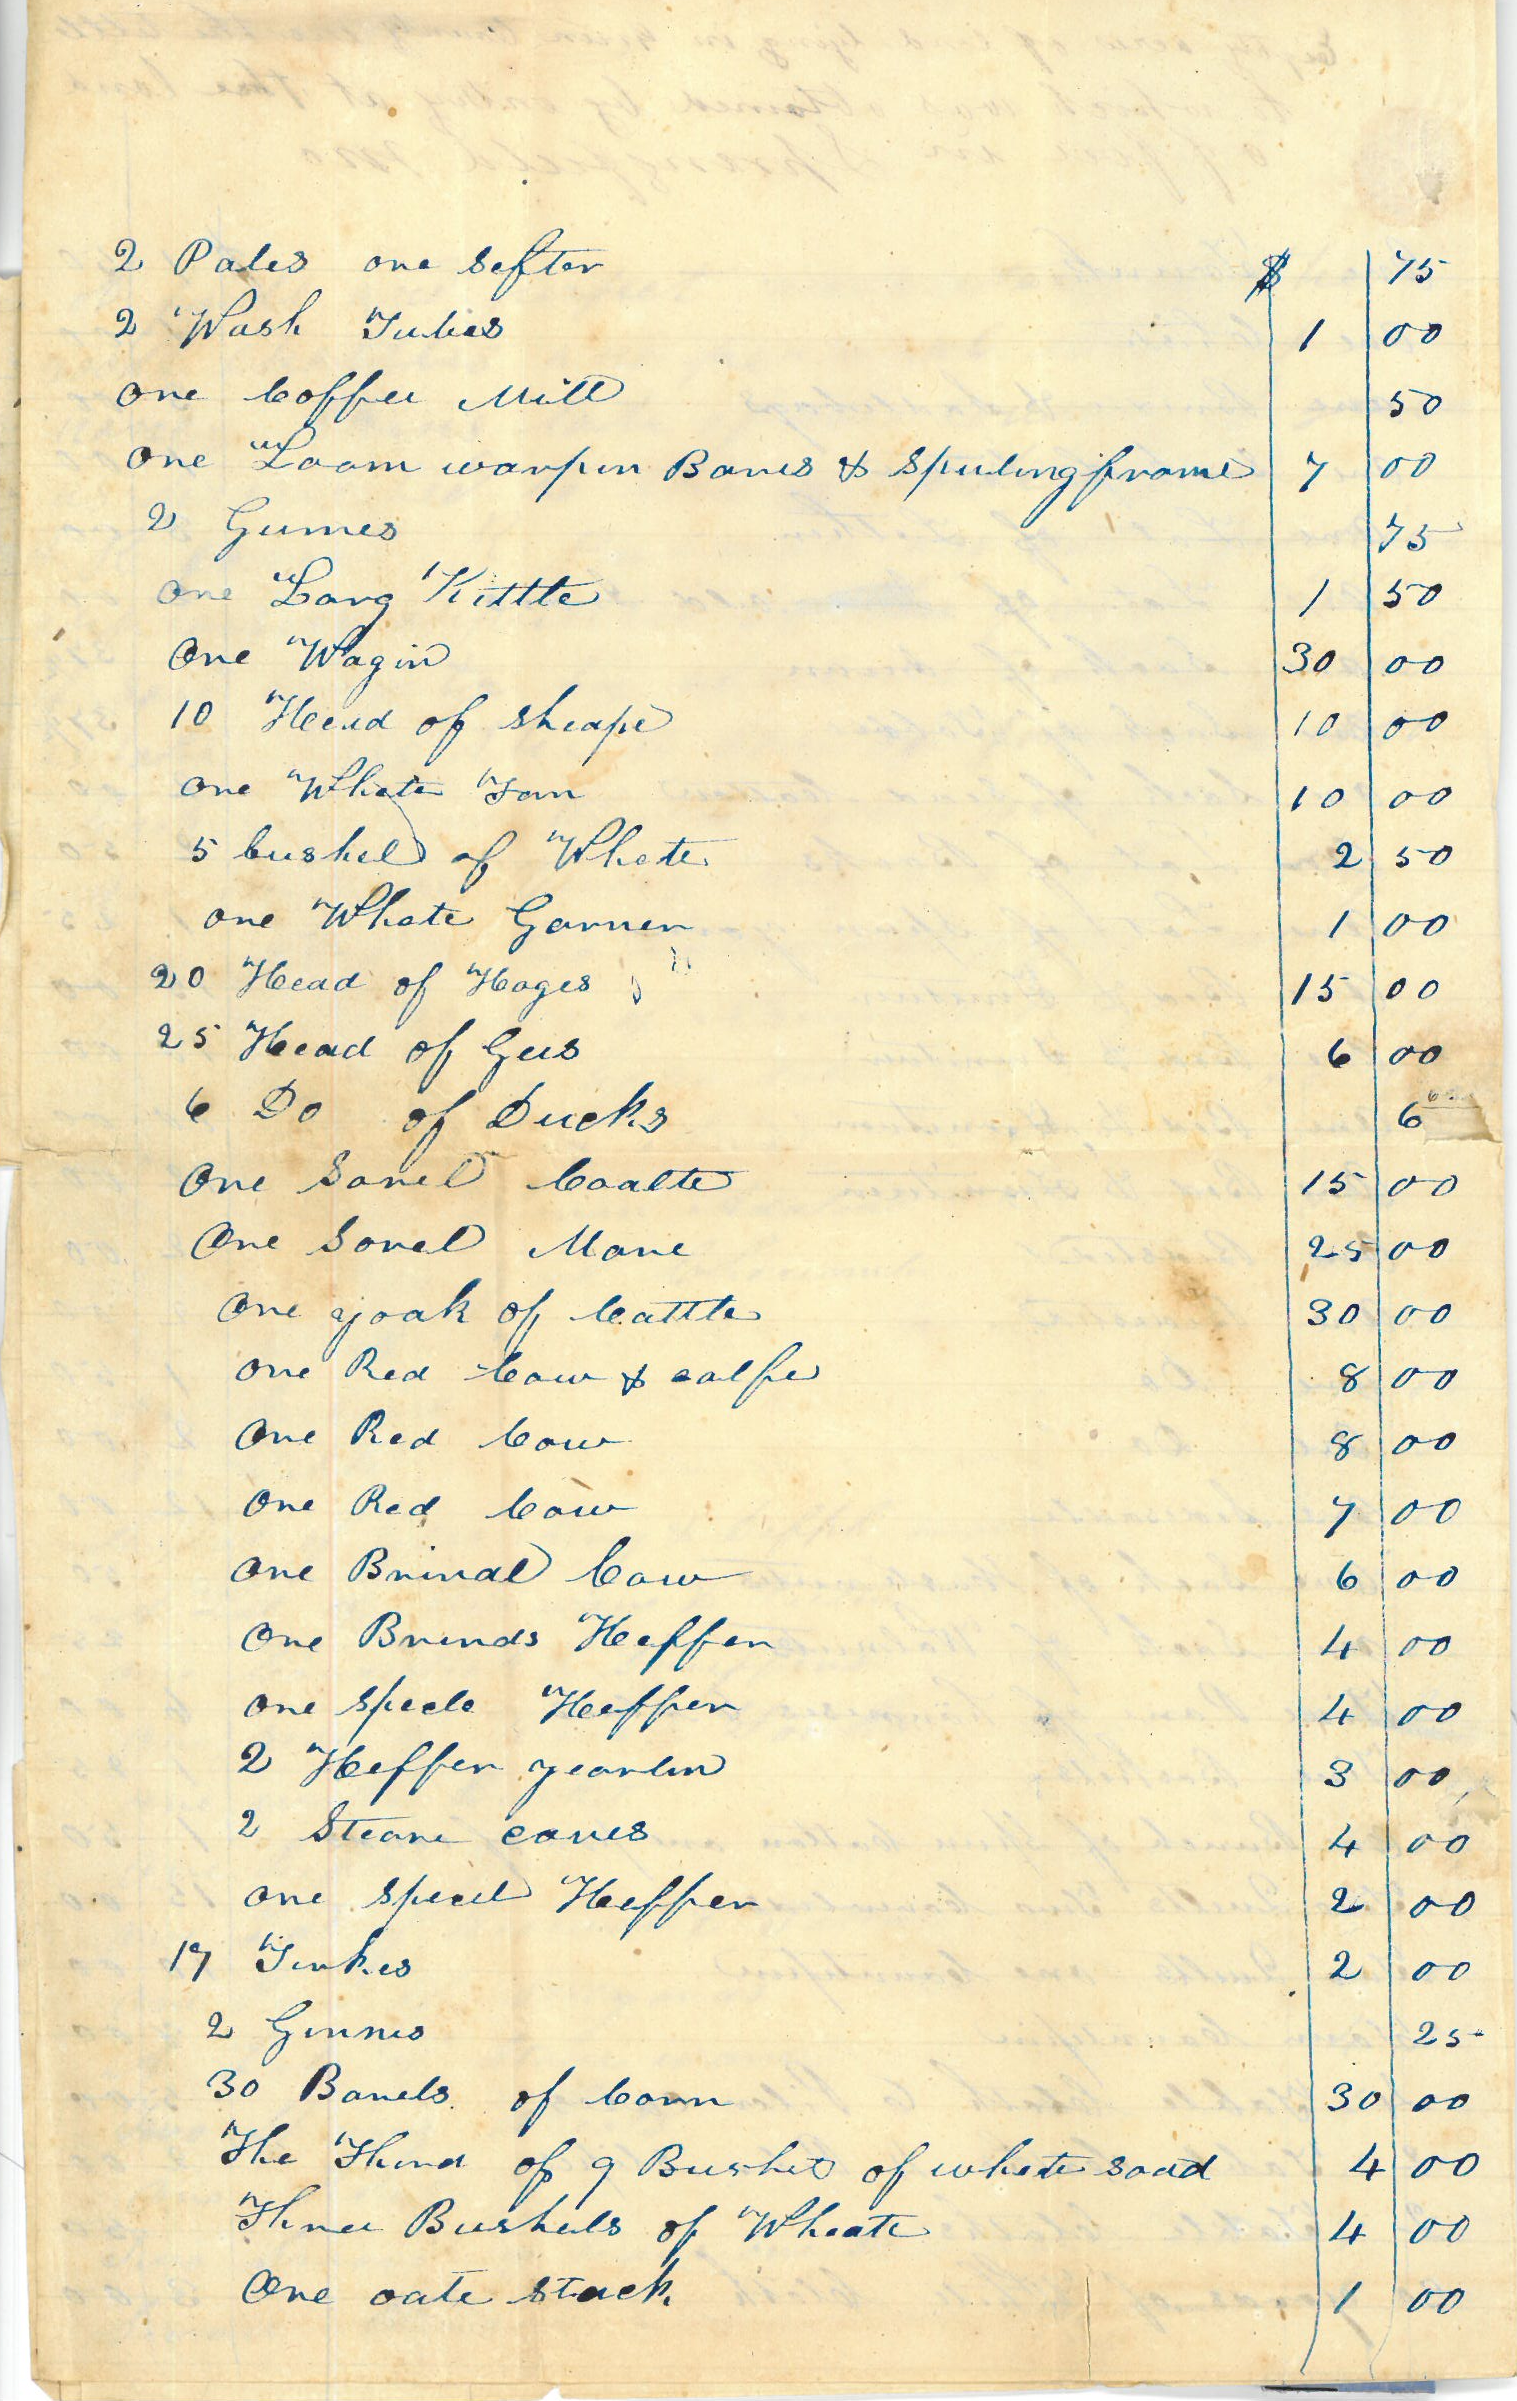 2 Pales one Sefter $ 75
2 Wash Tubes 1 00
one Coffee Mill 50
one Loom warpin Bares & spuling frame 7 00
2 Gumes 75
one Larg Kittle 1 50
One Wagin 30 00
10 Head of sheape 10 00
one Whete Fan 10 00
5 bushel of Whete 2 50
one Whate Garner 1 00
20 Head of Hoges 15 00
25 Head of Gees 6 00
6 Do of Ducks 6
One Sorel Coalte 15 00
One Sorel Mare 25 00
One yoak of Cattle 30 00
one Red Cow & calfe 8 00
One Red Cow 8 00
One Red Cow 7 00
One Brindl Cow 6 00
One Brinds Heffer 4 00
One Specle Heffer 4 00
2 Heffer yearlin 3 00
2 Steare caves 4 00
one specel Heffer 2 00
17 Turkes 2 00
2 Ginnes 25
30 Barels of Corn 30 00
The Third of 9 Bushel of whete soad 4 00
Three Bushels of Wheate 4 00
One oate stack 1 00